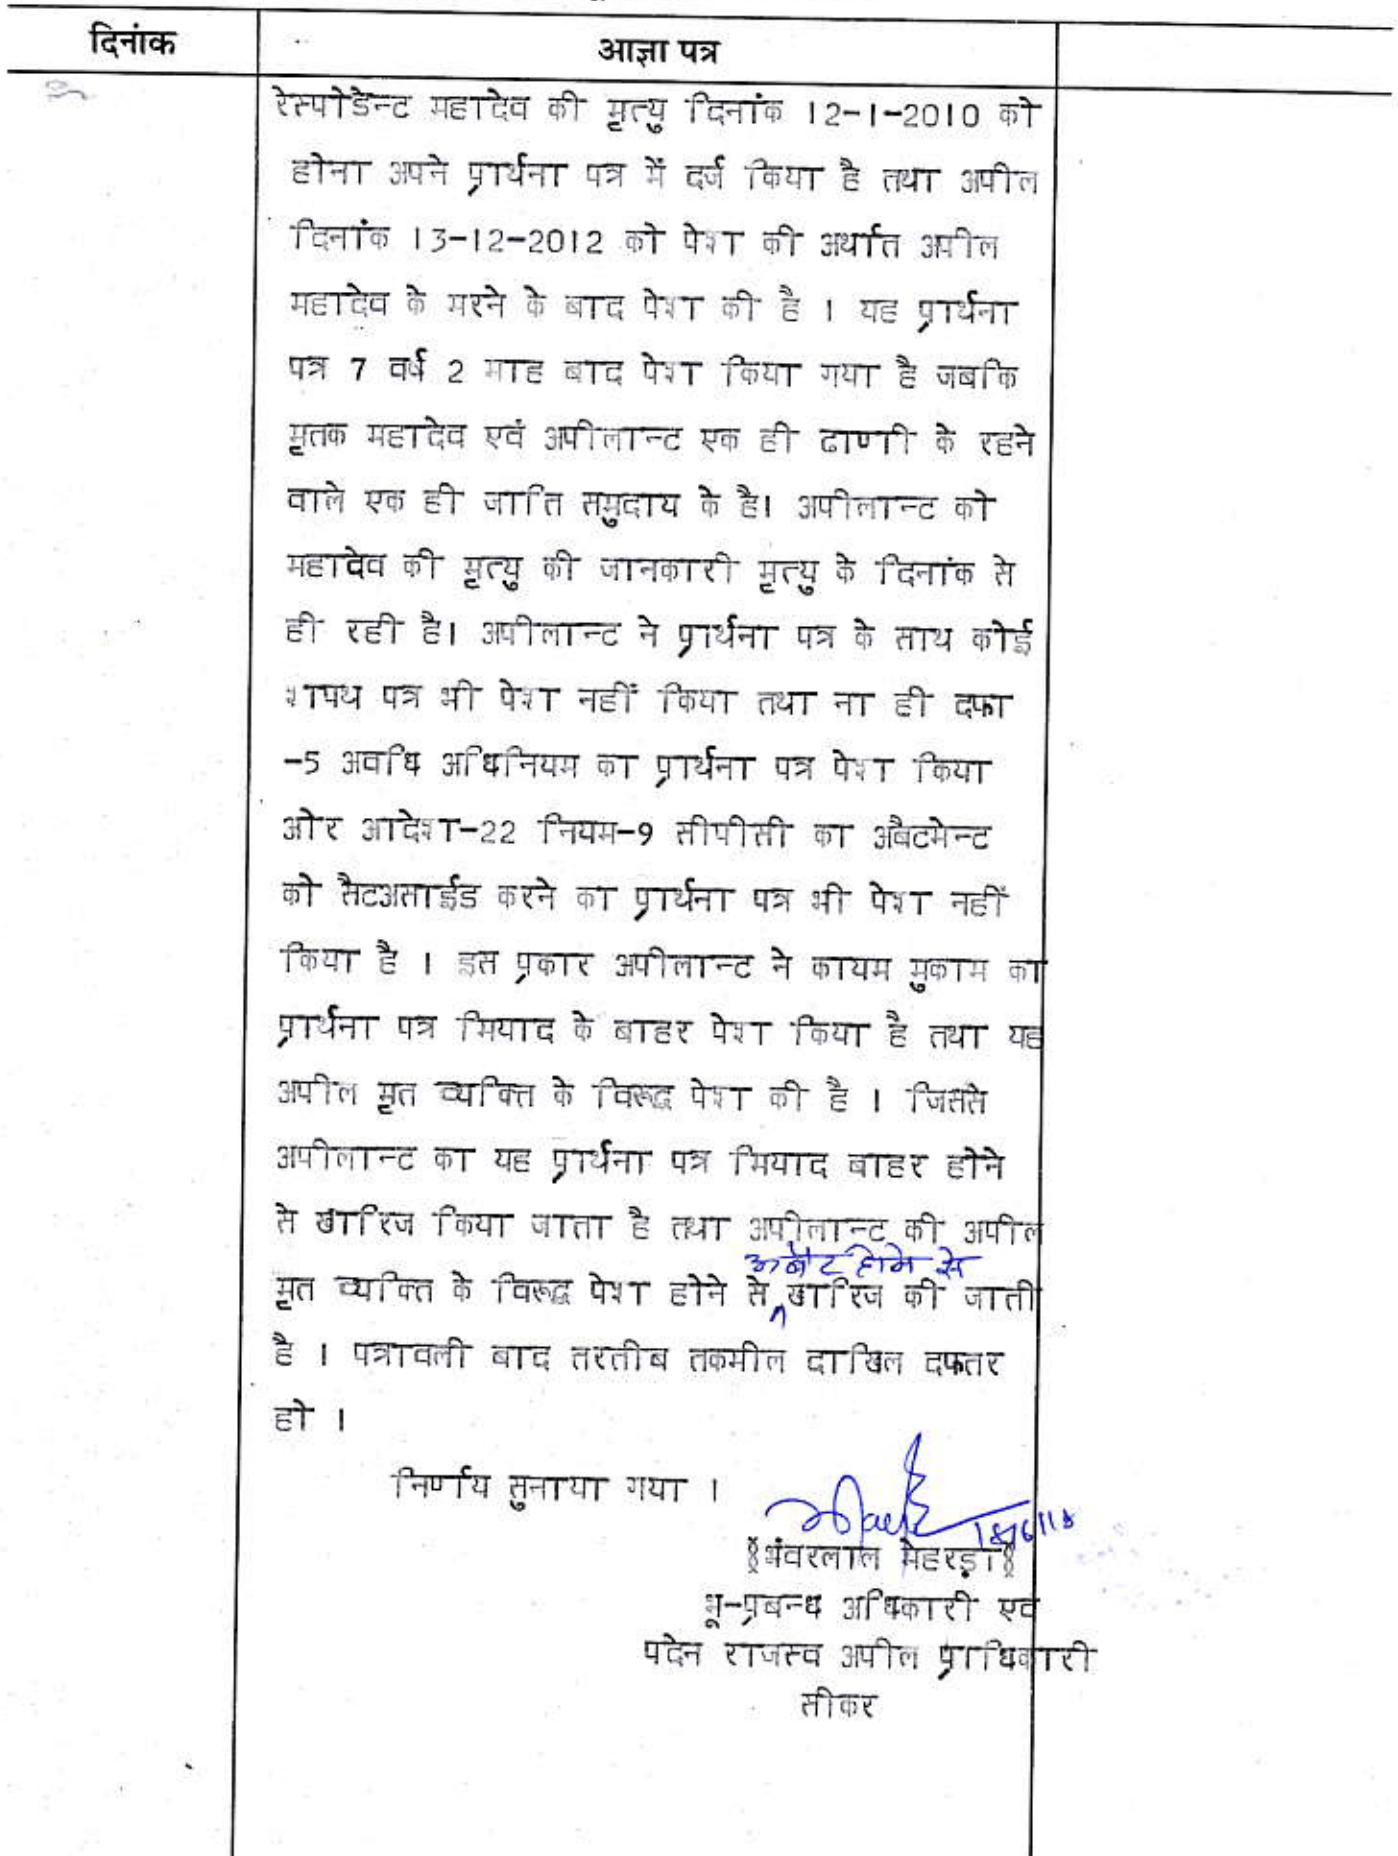 दिनांक
आज्ञा पत्र
रेस्पोडेन्ट महादेव की मृत्यु दिनांक 12-1-2010 को
होना अपने प्रार्थना पत्र में दर्ज किया है तथा अपील
दिनांक 13-12-2012 को पेश की अर्थात अपील
महादेव के मरने के बाद पेश की है । यह प्रार्थना
पत्र 7 वर्ष 2 माह बाद पेश किया गया है जबकि
मृतक महादेव एवं अपीलान्ट एक ही ढाणी के रहने
वाले एक ही जाति समुदाय के है। अपीलान्ट को
महादेव की मृत्यु की जानकारी मृत्यु के दिनांक से
ही रही है। अपीलान्ट ने प्रार्थना पत्र के साथ कोई
शपथ पत्र भी पेश नहीं किया तथा ना ही दफा
-5 अवधि अधिनियम का प्रार्थना पत्र पेश किया
ओर आदेश-22 नियम-9 सीपीसी का अबैटमेन्ट
को सैटअसाईड करने का प्रार्थना पत्र भी पेश नहीं
किया है । इस प्रकार अपीलान्ट ने कायम मुकाम का
प्रार्थना पत्र मियाद के बाहर पेश किया है तथा यह
अपील मृत व्यक्ति के विरूद्ध पेश की है । जिससे
अपीलान्ट का यह प्रार्थना पत्र मियाद बाहर होने
से खारिज किया जाता है तथा अपीलान्ट की अपील
अबैट होने से
मृत व्यक्ति के विरूद्ध पेश होने से खारिज की जाती
है । पत्रावली बाद तरतीब तकमील दाखिल दफ्तर
हो ।
निर्णय सुनाया गया ।
18/6/18
§भंवरलाल मेहरड़ा§
भू-प्रबन्ध अधिकारी एवं
पदेन राजस्व अपील प्राधिकारी
सीकर